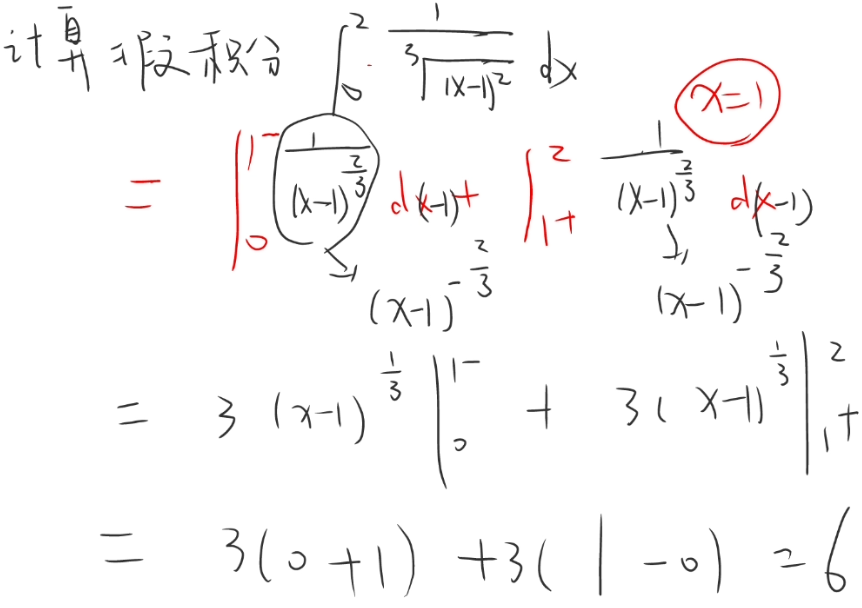 计算瑕积分 ∫₀² 1/∛(x-1)² dx
x=1
= ∫₀^{1-} 1/(x-1)^{2/3} d(x-1) + ∫_{1+}^{2} 1/(x-1)^{2/3} d(x-1)
(x-1)^{-2/3} (x-1)^{-2/3}
= 3(x-1)^{1/3} |₀^{1-} + 3(x-1)^{1/3} |_{1+}^{2}
= 3(0+1) + 3(1-0) = 6